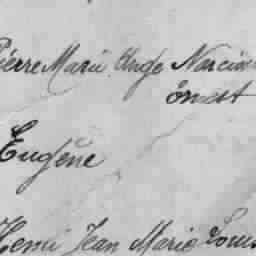 Pierre Marie Ange Narcisse
Ernest
Eugène
Henri Jean Marie Louis